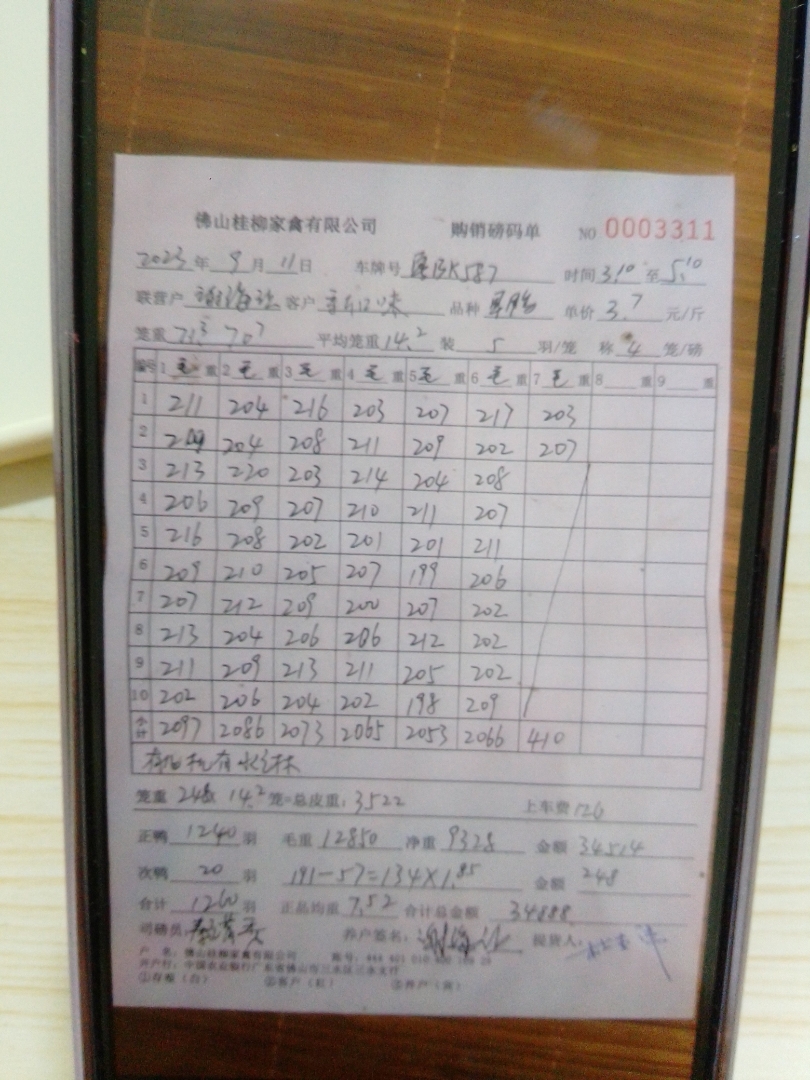 佛山桂柳家禽有限公司 购销磅码单 NO 0003311
2023年 9月 11日 车牌号 BK587 时间 3:10 至 5:10
联营户 客户 品种 单价 3.7 元/斤
笼重 71.3 70.7 平均笼重 14.2 装 5 羽/笼 称 4 笼/磅
编号 1 毛 重 2 毛 重 3 毛 重 4 毛 重 5 毛 重 6 毛 重 7 毛 重 8 重 9 重
1 211 204 216 203 207 217 203
2 209 204 208 211 209 202 207
3 213 220 203 214 204 208
4 206 209 207 210 211 207
5 216 208 202 201 201 211
6 209 210 205 207 199 206
7 207 212 209 200 207 202
8 213 204 206 206 212 202
9 211 209 213 211 205 202
10 202 206 204 202 198 209
合计 2097 2086 2073 2065 2053 2066 410
笼重 248 14.2 笼=总皮重: 3522 上车费 126
正鸭 1240 羽 毛重 12850 净重 9328 金额 34514
次鸭 20 羽 191-57=134×1.85 金额 248
合计 1260 羽 正品均重 7.52 合计总金额 34888
司磅员: 养户签名: 提货人:
户 名: 佛山桂柳家禽有限公司 账号:
开户行: 中国农业银行广东省佛山市三水区三水支行
①存根(白) ②客户(红) ③养户(黄)